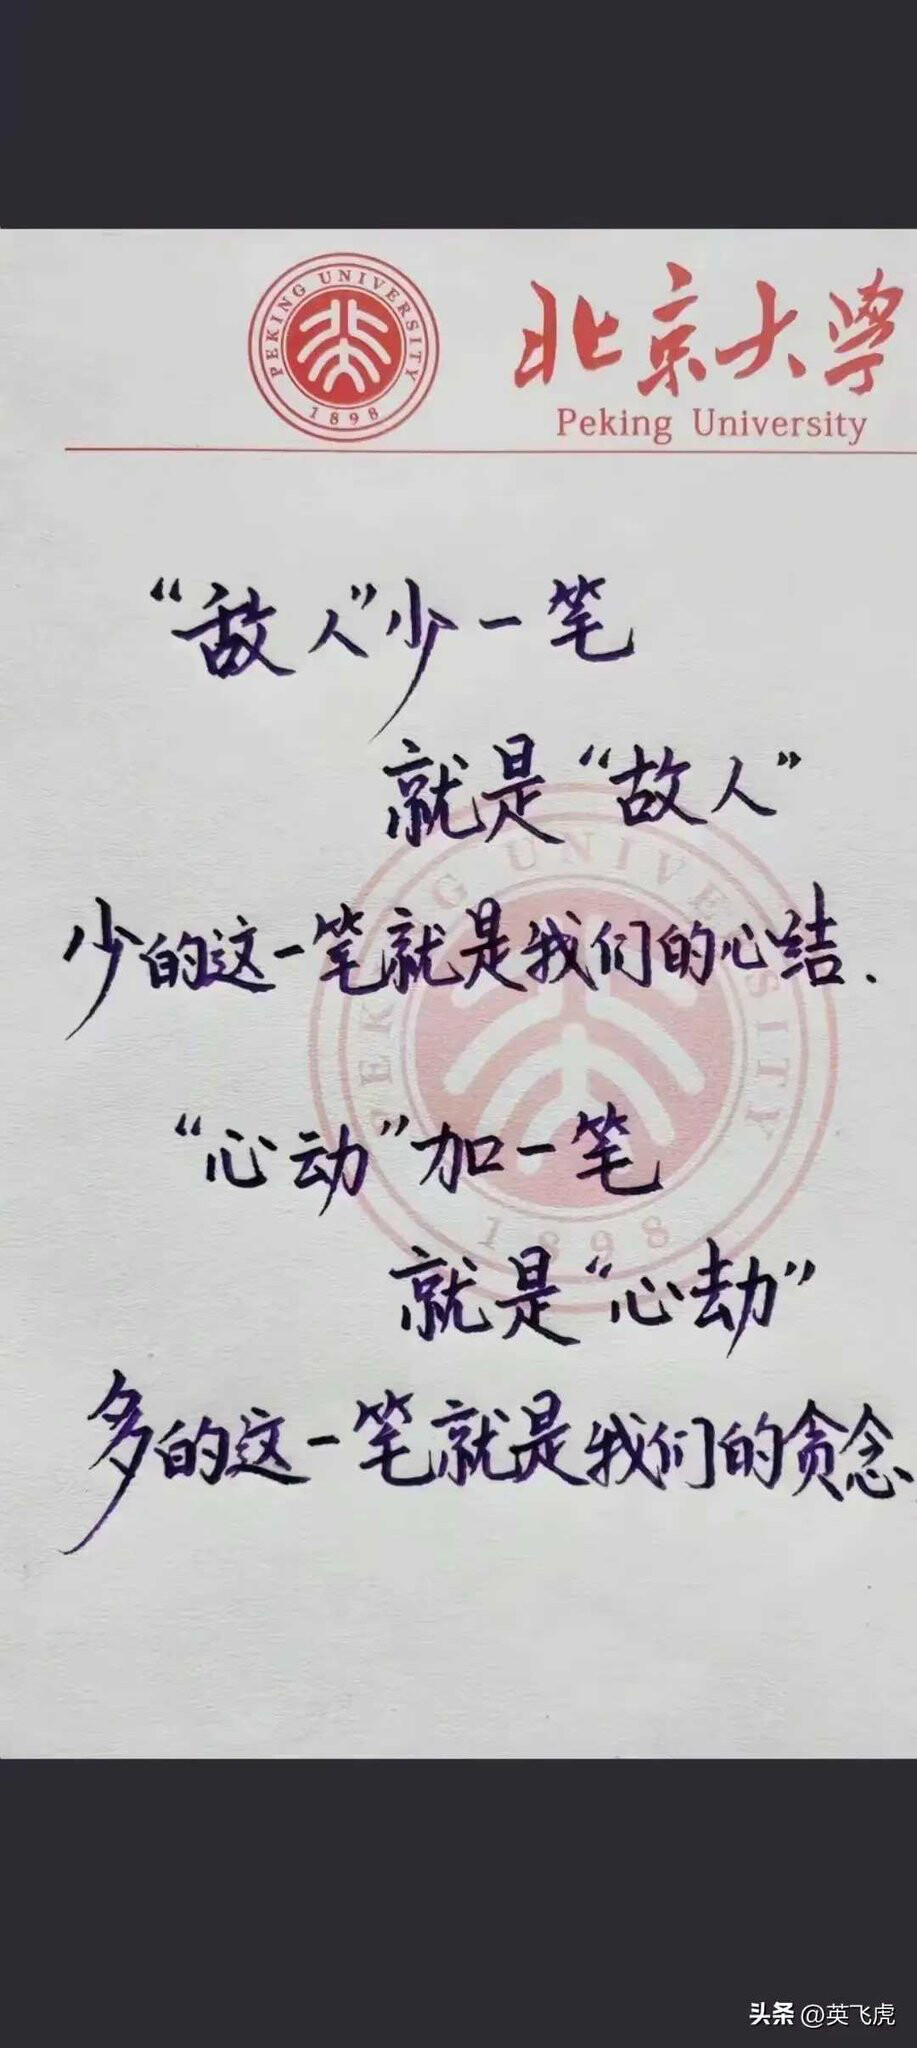 PEKING UNIVERSITY
1898
北京大学
Peking University
“敌人”少一笔
就是“故人”
少的这一笔就是我们的心结.
“心动”加一笔
就是“心劫”
多的这一笔就是我们的贪念.
PEKING UNIVERSITY
1898
头条 @英飞虎